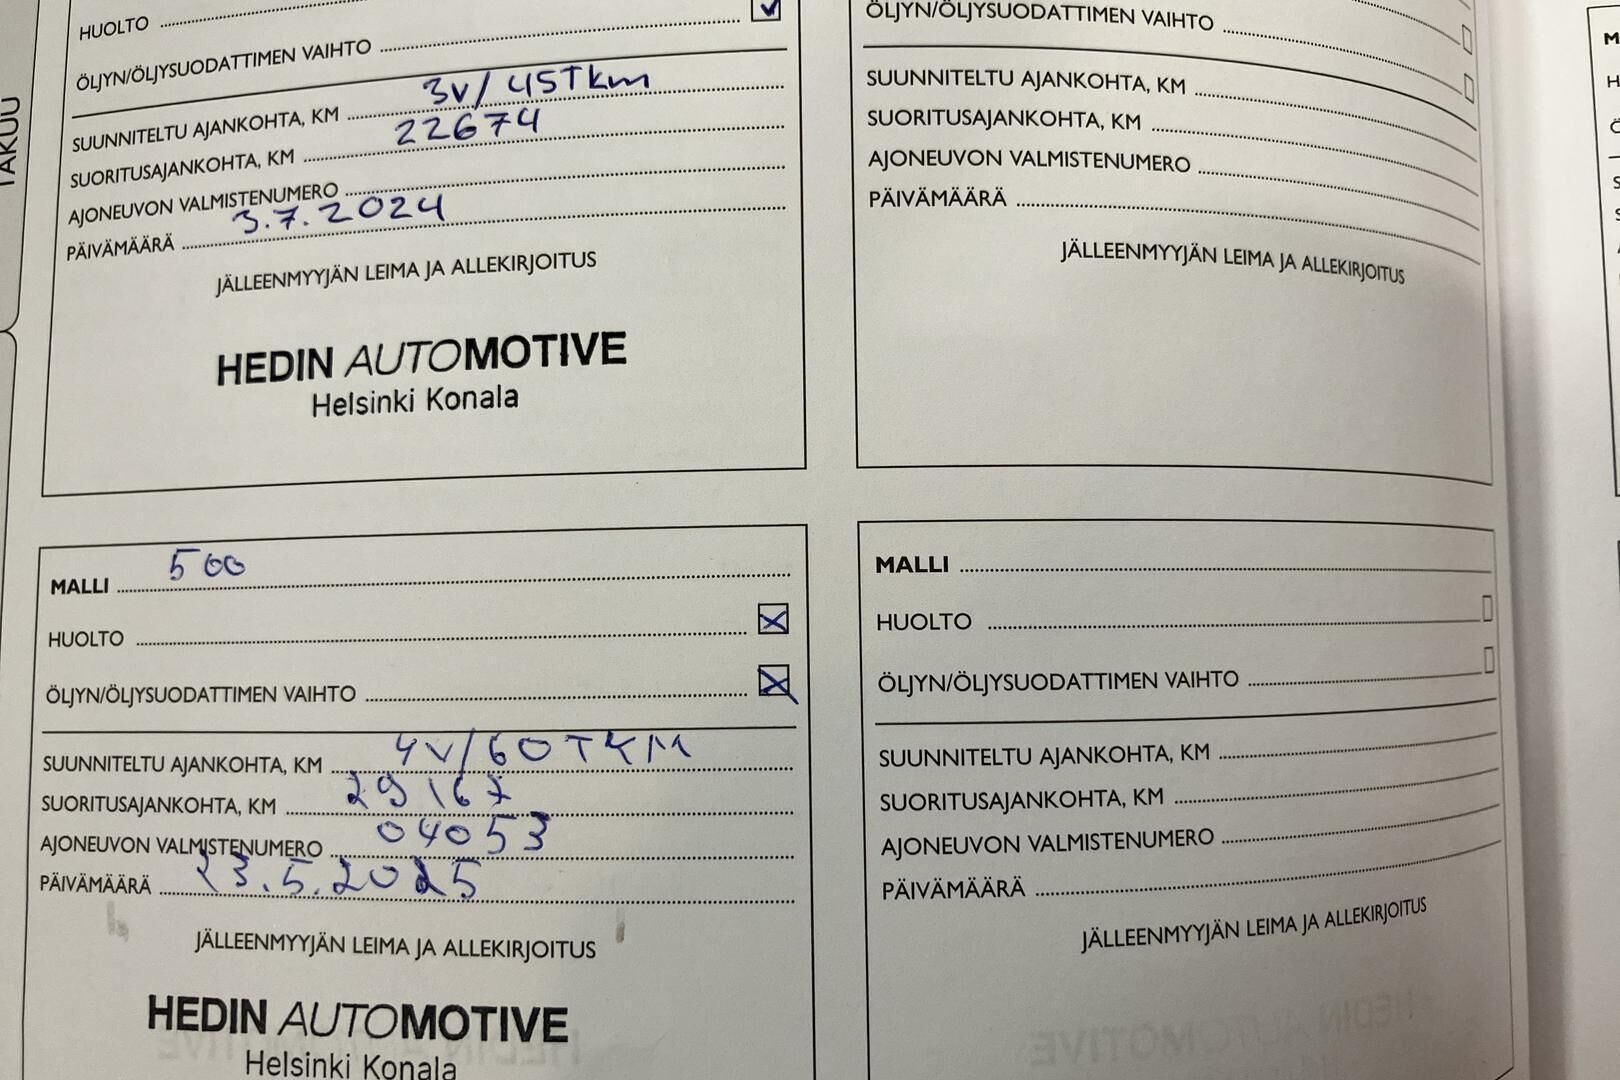 TAKUU
HUOLTO
ÖLJYN/ÖLJYSUODATTIMEN VAIHTO
SUUNNITELTU AJANKOHTA, KM 3V/45TKm
SUORITUSAJANKOHTA, KM 22674
AJONEUVON VALMISTENUMERO
PÄIVÄMÄÄRÄ 3.7.2024
JÄLLEENMYYJÄN LEIMA JA ALLEKIRJOITUS
HEDIN AUTOMOTIVE
Helsinki Konala
MALLI 500
HUOLTO
ÖLJYN/ÖLJYSUODATTIMEN VAIHTO
SUUNNITELTU AJANKOHTA, KM 4V/60TKM
SUORITUSAJANKOHTA, KM 29167
AJONEUVON VALMISTENUMERO 04053
PÄIVÄMÄÄRÄ 23.5.2025
JÄLLEENMYYJÄN LEIMA JA ALLEKIRJOITUS
HEDIN AUTOMOTIVE
Helsinki Konala
ÖLJYN/ÖLJYSUODATTIMEN VAIHTO
SUUNNITELTU AJANKOHTA, KM
SUORITUSAJANKOHTA, KM
AJONEUVON VALMISTENUMERO
PÄIVÄMÄÄRÄ
JÄLLEENMYYJÄN LEIMA JA ALLEKIRJOITUS
MALLI
HUOLTO
ÖLJYN/ÖLJYSUODATTIMEN VAIHTO
SUUNNITELTU AJANKOHTA, KM
SUORITUSAJANKOHTA, KM
AJONEUVON VALMISTENUMERO
PÄIVÄMÄÄRÄ
JÄLLEENMYYJÄN LEIMA JA ALLEKIRJOITUS